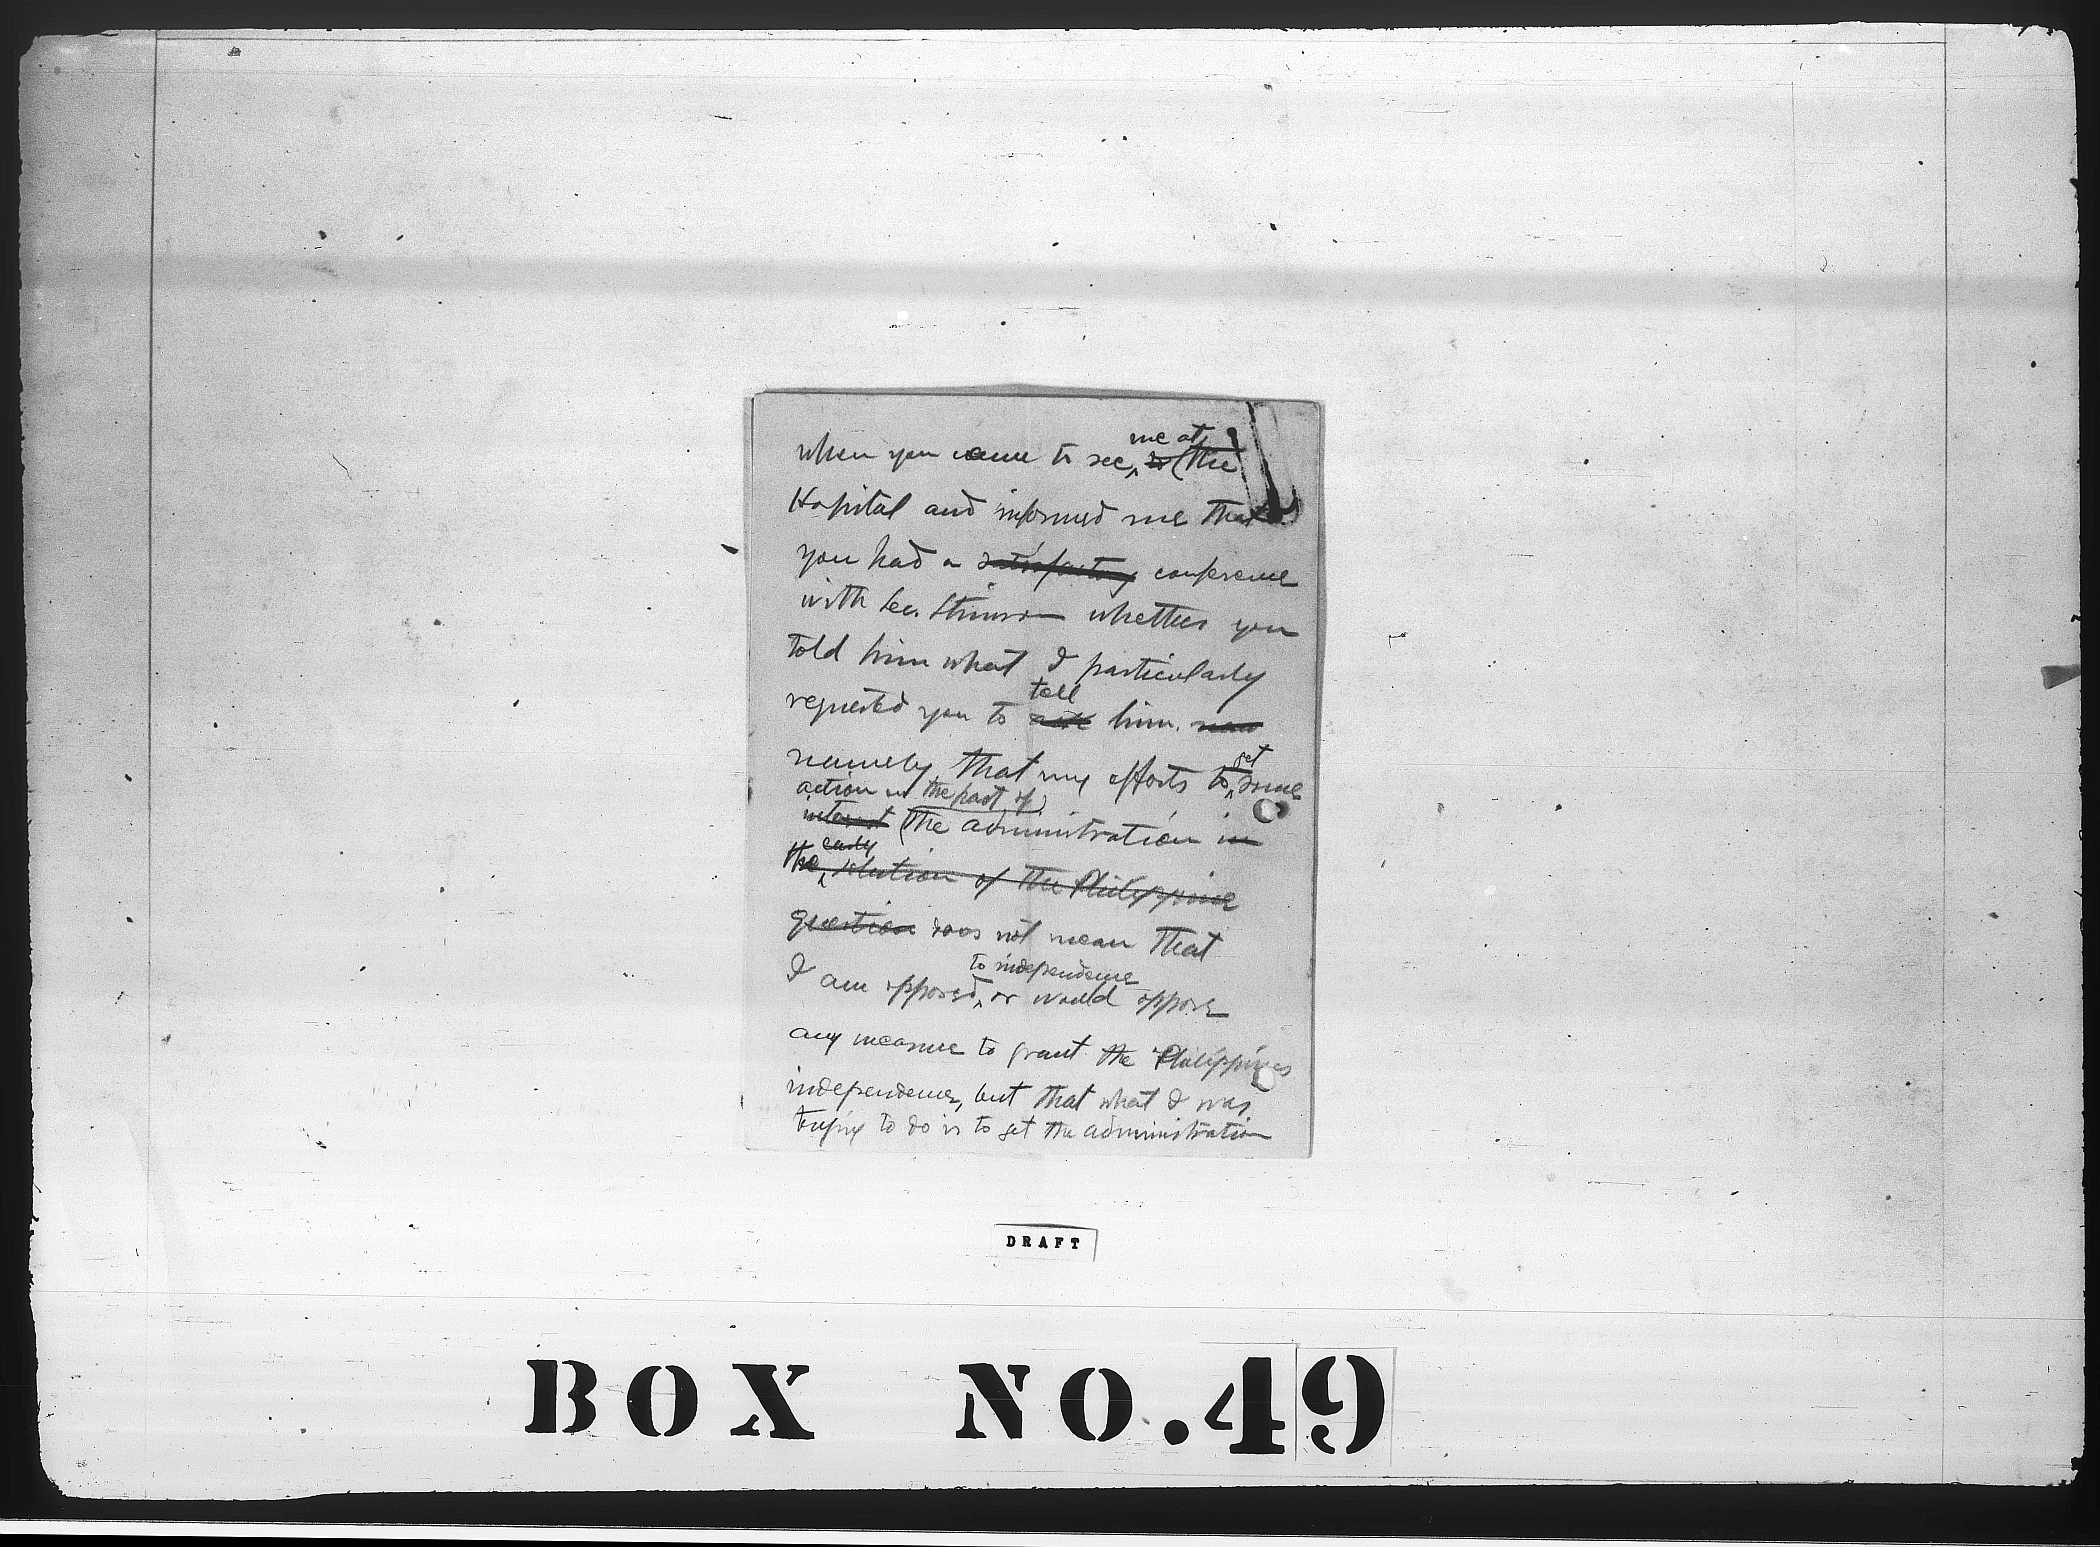 when you came to see me at the
Hospital and informed me that
you had a satisfactory conference
with Sec. Stimson whether you
told him what I particularly
requested you to tell him.
namely, that my efforts to get some
action on the part of
interest the administration in
the early solution of the Philippine
question does not mean that
I am opposed to independence or would oppose
any measure to grant the Philippines
independence, but that what I was
trying to do is to get the administration
DRAFT
BOX NO. 49